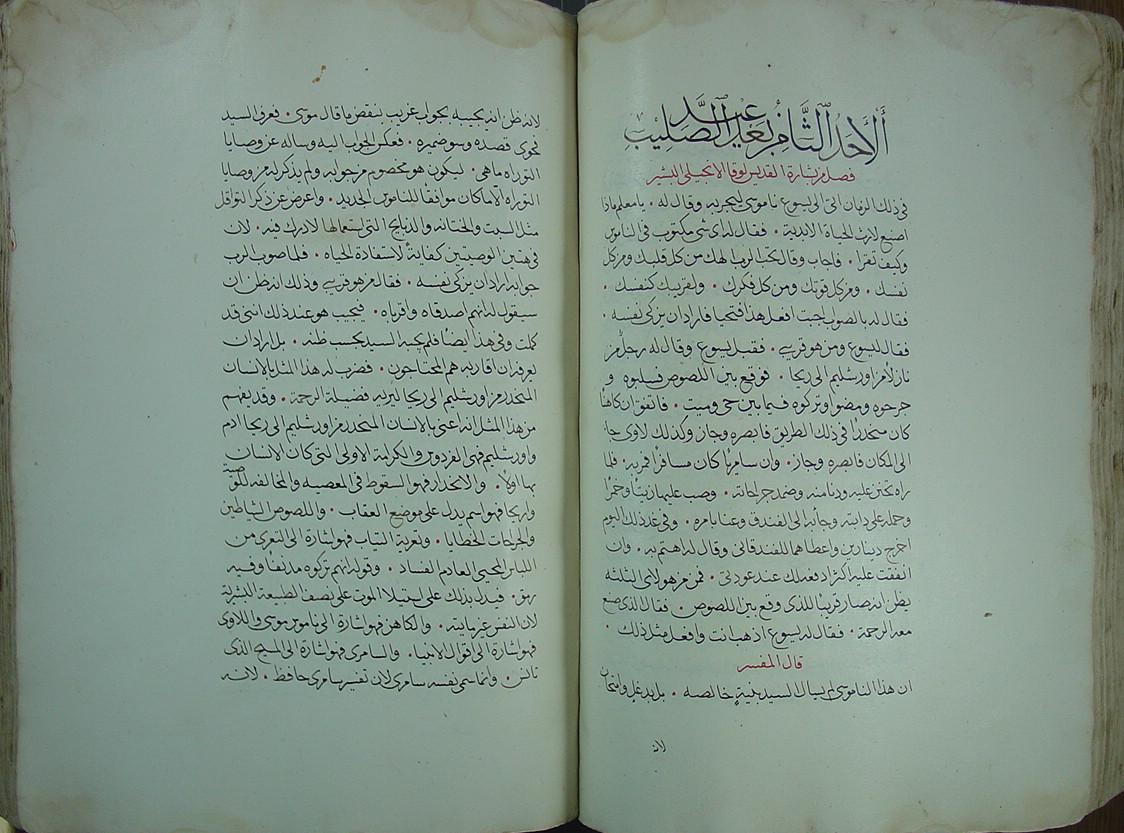 الاحد الثامن بعد عيد الصليب
فصل من بشارة القديس لوقا الانجيلي البشير
في ذلك الزمان اتى الى يسوع ناموسي ليجربه وقال له . يا معلم ماذا
اصنع لارث الحياة الابدية . فقال له اي شي مكتوب في الناموس
وكيف تقرا . فاجاب وقال تحب الرب الهك من كل قلبك ومن كل
نفسك . ومن كل قوتك ومن كل فكرك . ولقريبك كنفسك .
فقال له بالصواب اجبت افعل هذا فتحيا فاراد ان يزكي نفسه .
فقال ليسوع ومن هو قريبي . فقبل يسوع وقال له رجل من
نازلا من اورشليم الى ريحا . فوقع بين اللصوص فسلبوه و
جرحوه ومضوا وتركوه فيما بين حي وميت . فاتفق ان كاهنا
كان منحدرا في ذلك الطريق فابصره وجاز وكذلك لاوي جا
الى المكان فابصره وجاز . وان سامريا كان مسافرا فمر به . فلما
راه تحنن عليه ودنا منه وضمد جراحاته . وصب عليها زيتا وخمرا
وحمله على دابته وجا به الى الفندق وعنا بامره . وفي غد ذلك اليوم
اخرج دينارين واعطاهما للفندقاني وقال له اهتم به . وان
انفقت عليه اكثر ادفعه لك عند عودتي . فمن من هولاي الثلثه
يظن انه صار قريبا للذي وقع بين اللصوص . فقال الذي صنع
معه الرحمة . فقال له يسوع اذهب انت وافعل مثل ذلك .
قال المفسر
ان هذا الناموسي لم يسال السيد بنية خالصه . بل بدغل وامتحان
لانه
لانه ظن انه يجيبه بجواب غريب ينقض ما قال موسى . فعرف السيد
فحوى قصده وسو ضميره . فعكس الجواب اليه وساله عن وصايا
التوراه ماهي . ليكون هو مخصوم من جوابه ولم يذكر له من وصايا
التوراه الا ما كان موافقا للناموس الجديد . واعرض عن ذكر النوافل
مثل السبت والختانه والذبايح التي استعمالها لا درك فيه . لان
في هتين الوصيتين كفاية لاستفادة الحياه . فلما صوب الرب
جوابه اراد ان يزكي نفسه . فقال من هو قريبي وذلك انه ظن ان
سيقول له انهم اصدقاه واقرباه . فيجيب هو عند ذلك انني قد
كملت وفي هذا ايضا فلم يجبه السيد بحسب ظنه . بل اراد ان
يعرفه ان اقاربه هم المحتاجون . فضرب له هذا المثل بالانسان
المنحدر من اورشليم الى ريحا ليريه فضيلة الرحمة . وقد يفهم
من هذا المثل انه عنى بالانسان المنحدر من اورشليم الى ريحا ادم
واورشليم فهو الفردوس والكرامة الاولى التي كان الانسان
بها اولا . والانحدار فهو السقوط في المعصيه والمخالفه للوصية
واريحا فهو اسم يدل على موضع العقاب . واللصوص الشياطين
والجراحات الخطايا . وتعرية الثياب فهو اشارة الى التعري من
اللباس المحيي العادم الفساد . وقوله انهم تركوه مدنفا وفيه
رمق . فيدل بذلك على استيلا الموت على نصف الطبيعة البشرية
لان النفس غير مايته . والكاهن فهو اشارة الى ناموس موسى واللاوي
فهو اشارة الى اقوال الانبيا . والسامري فهو اشارة الى المسيح الذي
تانس . وانما سمى نفسه سامري لان تفسير سامري حافظ . لانه